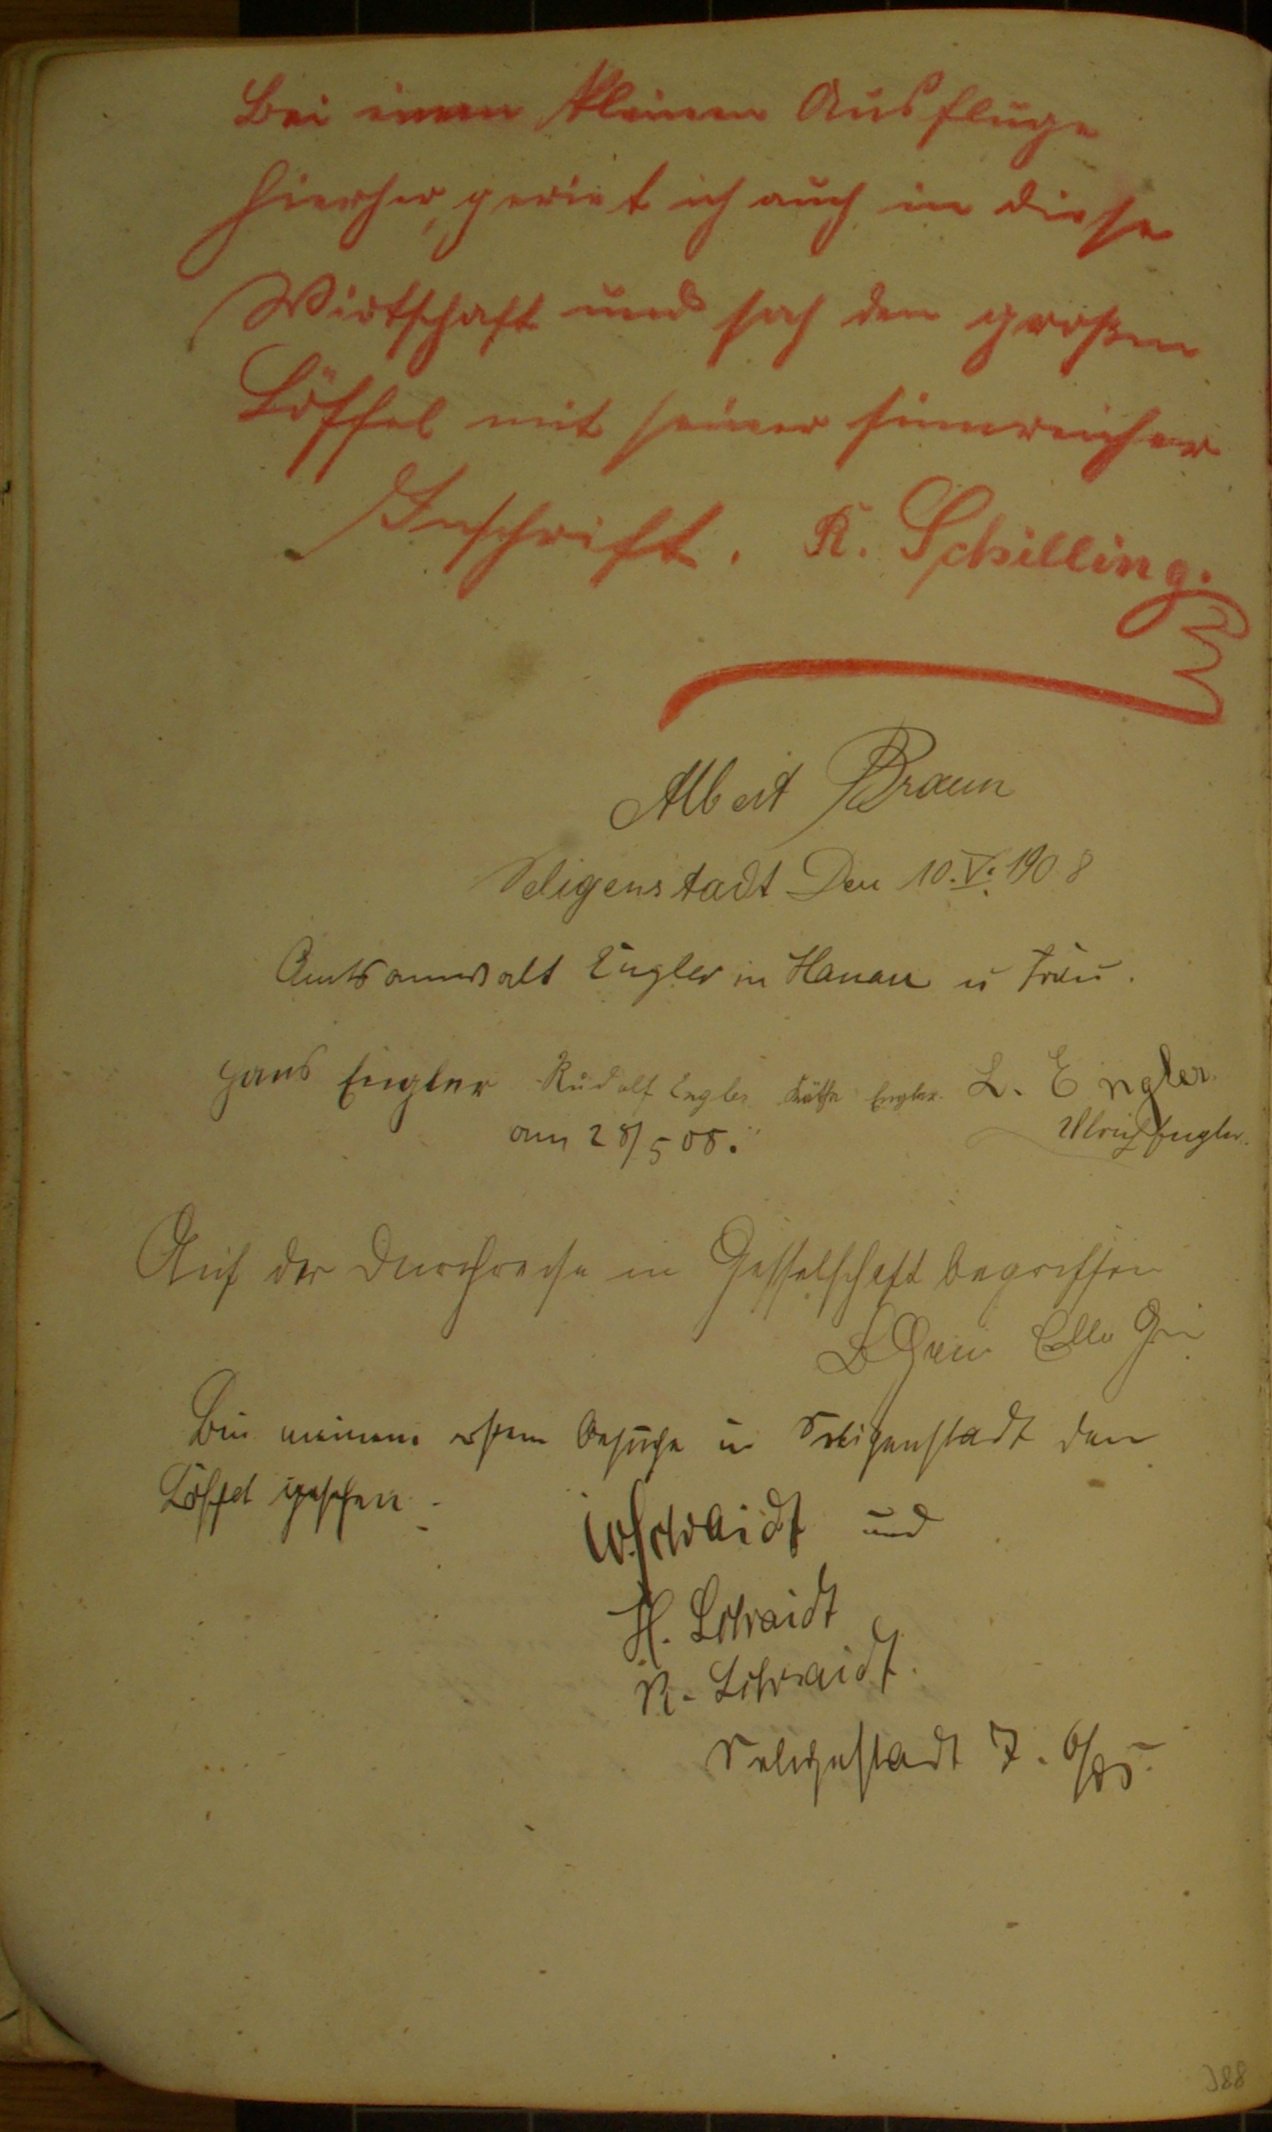 Bei einen kleinen Ausfluge
hierher, geriet ich auch in diese
Wirtschaft und sah den großen
Löffel mit seiner sinnreicher
Inschrift. K. Schilling.
Albert Braun
Seligenstadt Den 10. V. 1908
Amtsanwalt Engler in Hanau u Frau.
Hans Engler Rudolf Engler Käthe Engler. L. Engler.
am 28/5 08. Ulrich Engler.
Auf der Durchreise in Gesellschaft begriffen
Bei meinem ersten Besuche in Seligenstadt den
Löffel gesehen.
W. Schraidt und
H. Schraidt
R. Schraidt.
Seligenstadt 7. 6/
388